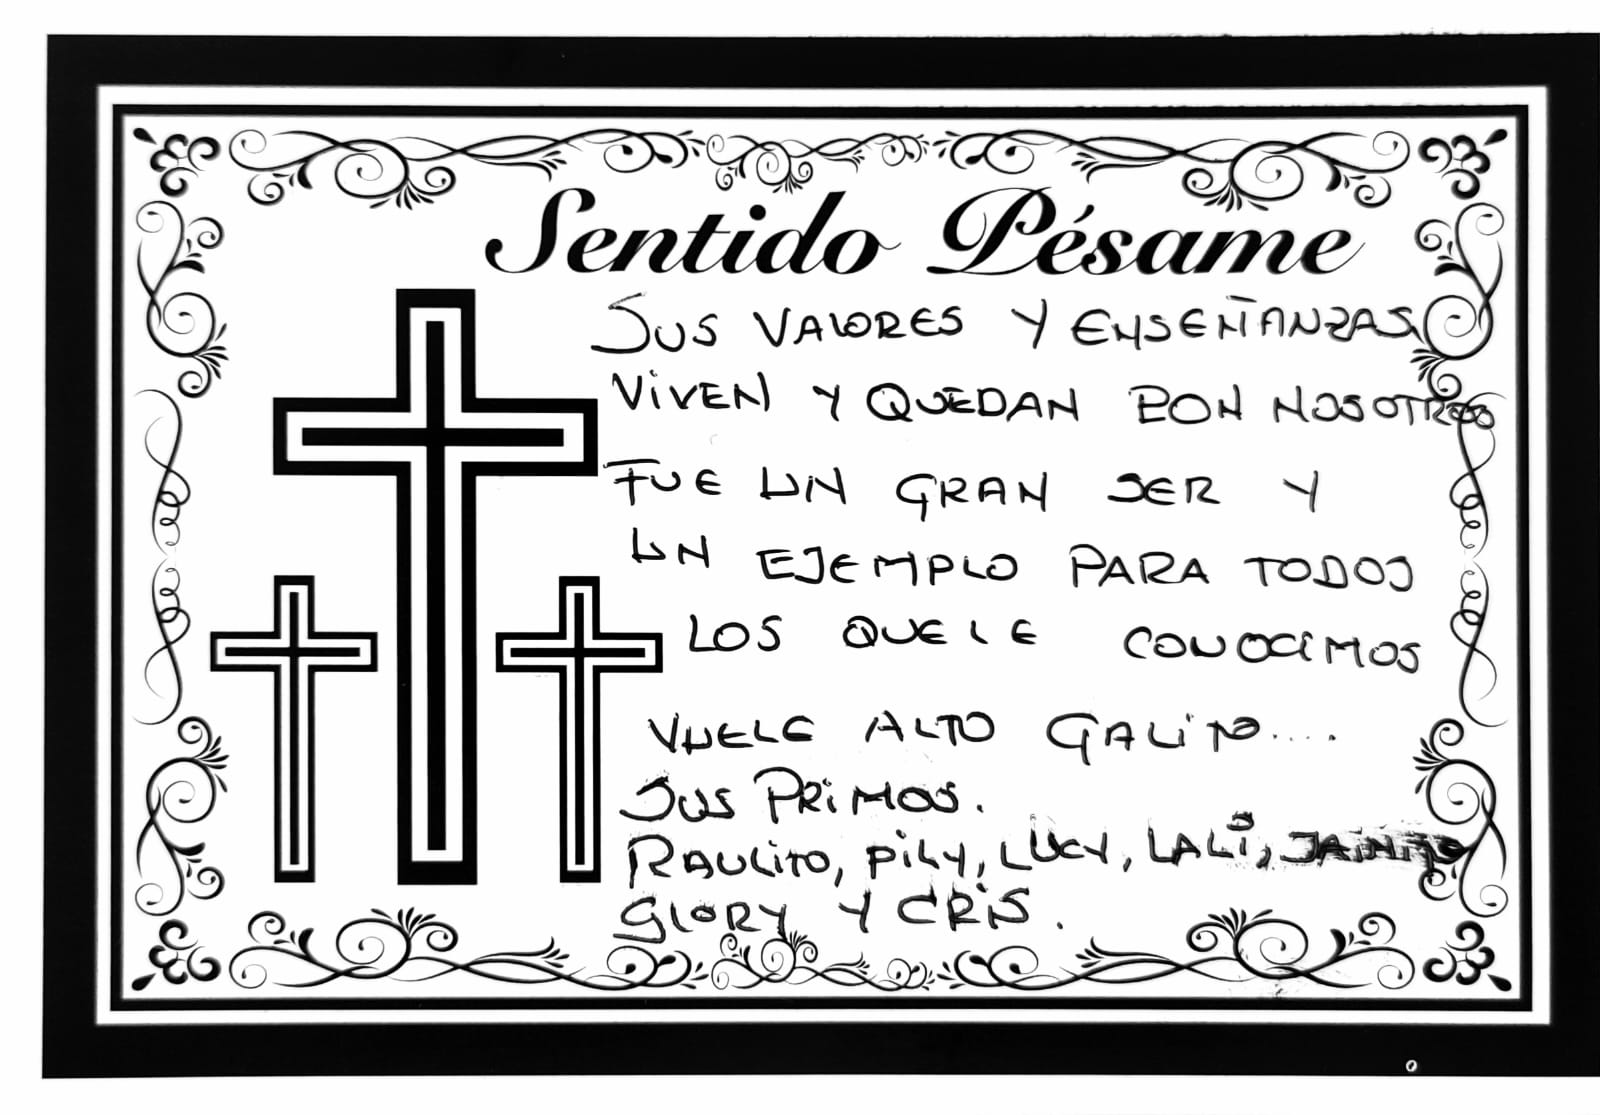 Sentido Pésame
SUS VALORES Y ENSEÑANZAS
ViVEN Y QUEDAN CON NOSOTROS
FUE UN GRAN SER Y
UN EJEMPLO PARA TODOS
LOS QUE LE CONOCiMOS
VUELE ALTO GALiTO....
SUS PRiMOS.
RAULiTO, PiLY, LUCY, LALi,
GLORY Y CRiS.